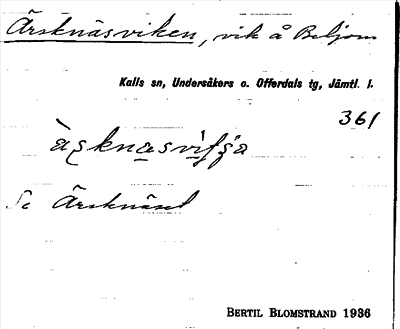 Ärsknäsviken, vik å Beljom
Kalls sn, Undersåkers o. Offerdals tg, Jämtl. l.
361
Se Ärsknäset
BERTIL BLOMSTRAND 1936